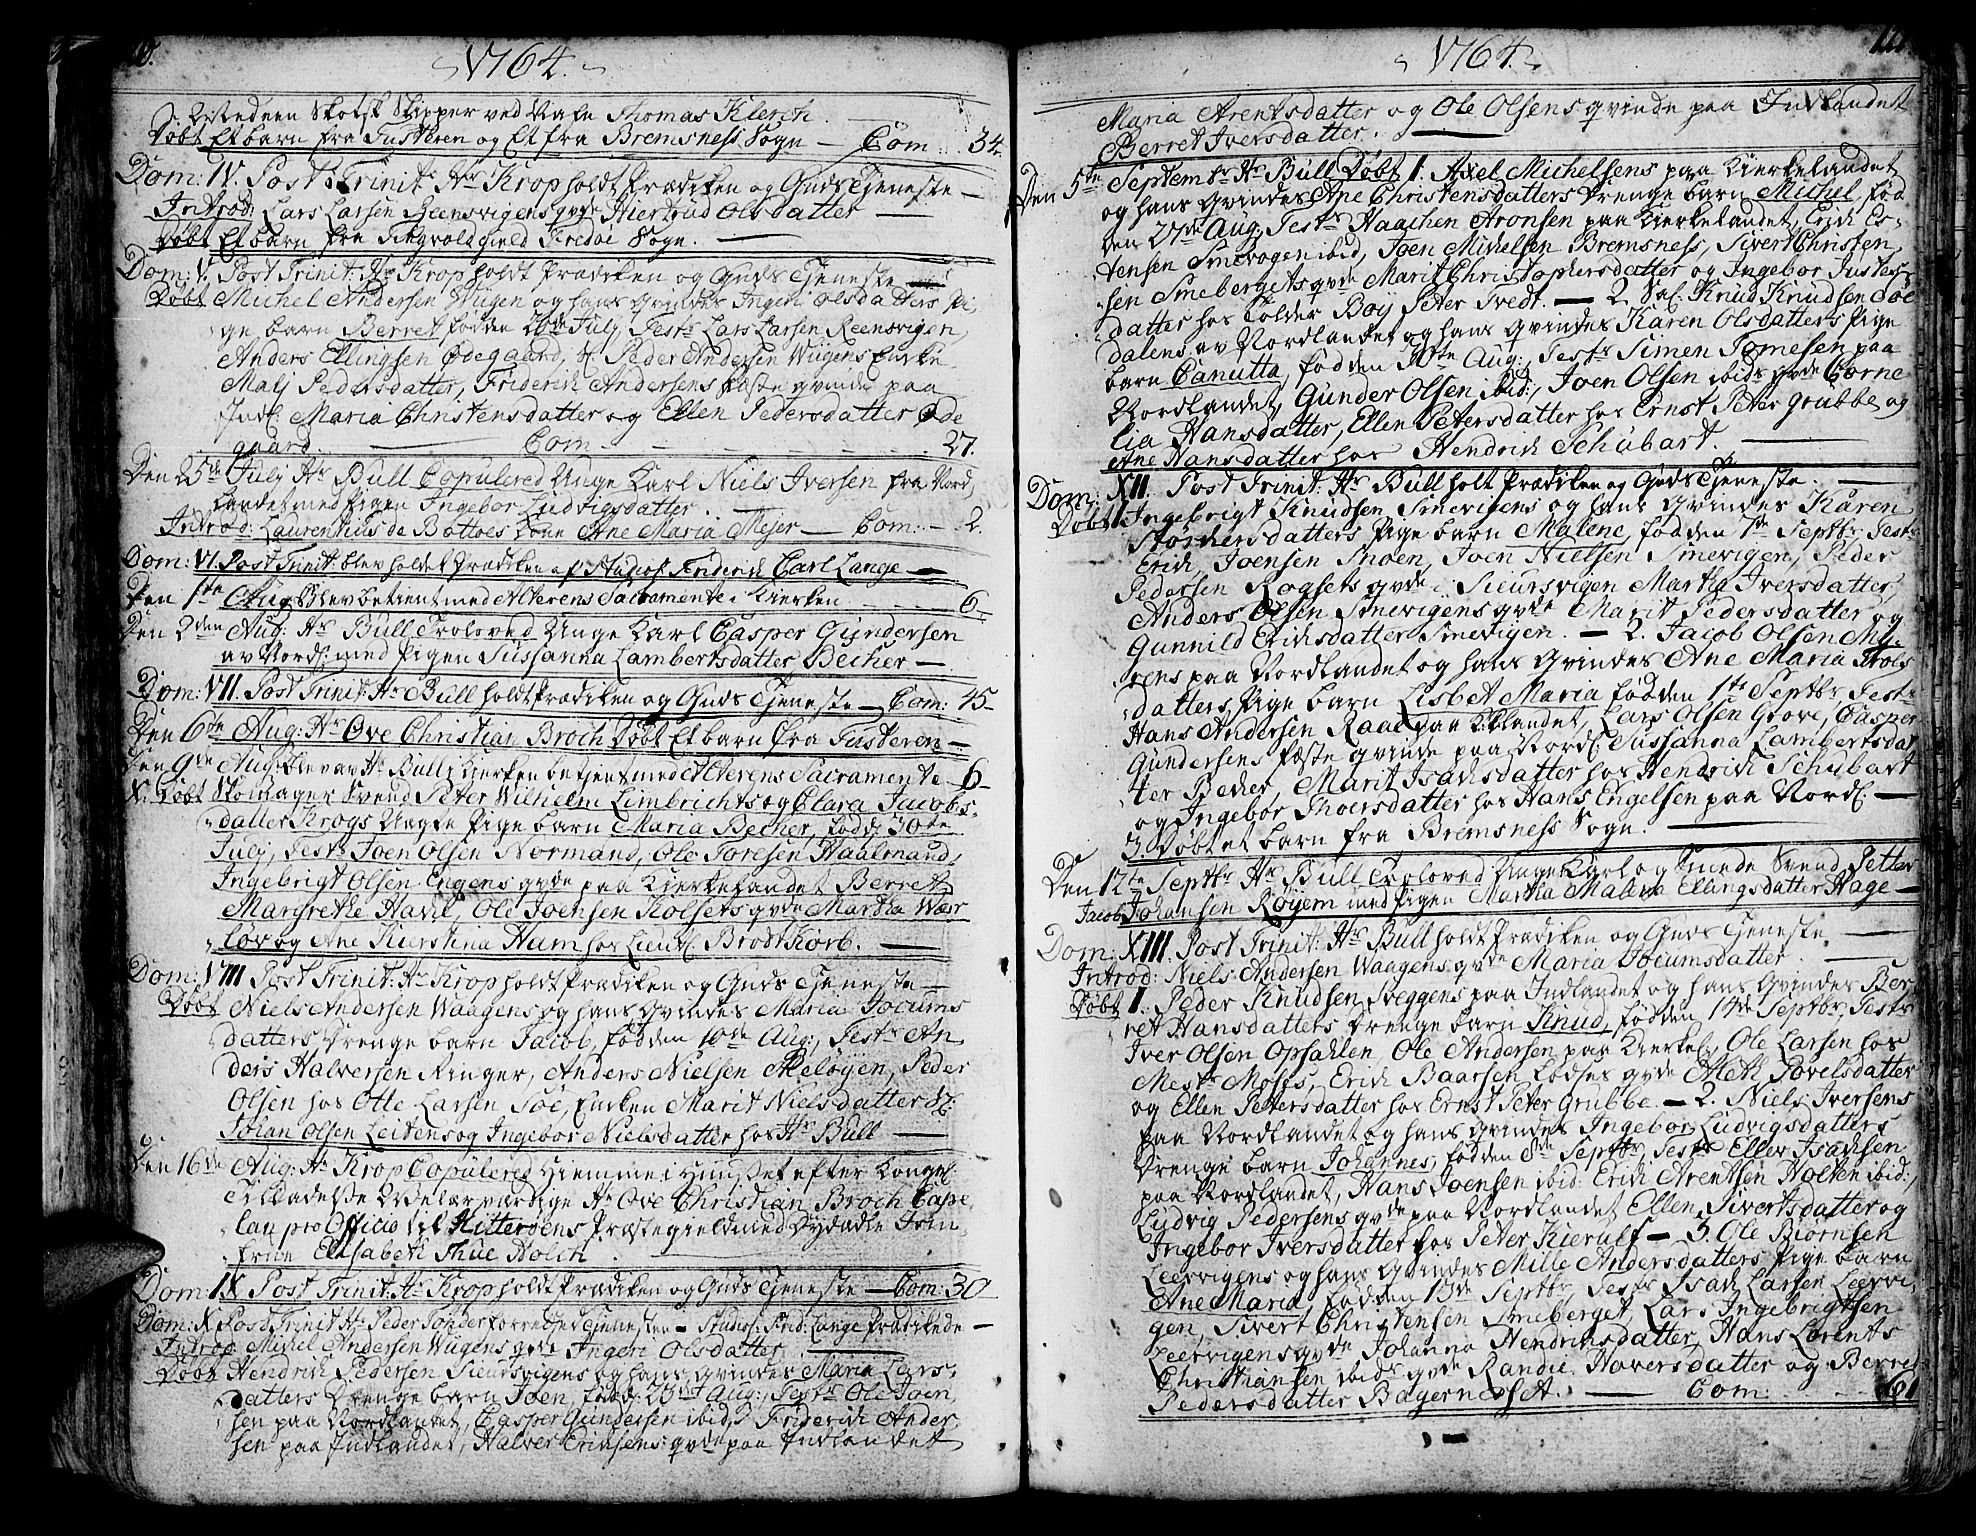 1764.
Skotsk Skipper ved Nafn Thomas Klerch
Døbt Et barn fra Tusteren og Et fra Bremsness Sogn — Com: 34.
Dom: IV. Post Trinit: Hr Krop holdt Prædiken og Guds Tjeneste —
Introd: Lars Larsen Reensvigens qvde Hiertrud Olsdatter —
Døbt Et barn fra Qvernes Fredøe Sogn. —
Dom: V. Post Trinit: Hr Krop holdt Prædiken og Guds Tjeneste
Døbt Michel Andersen Wugen og hans Qvindes Ingeri Olsdatters Pi,
ge barn Berret fød den 20de July, Test: Lars Larsen Reensvigen,
Anders Ellingsen Ødegaard, Peder Andersen Wugens Encke
Mali Pedersdatter, Friderich Andersens fæste qvinde paa
Indl: Maria Christensdatter og Ellen Pedersdatter Øde
gaard. — Com 27.
Den 25de July Hr Bull Copulered Unge Karl Niels Iversen fra Nord,
landet med Pigen Ingebor Ludvigsdatter. —
Introd: Laurenthius de Bottoes Kone Ane Maria Mejer — Com: — 2.
Dom: VI. Post Trinit: blev holdet Prædiken af Studios: Friderich Carl Lange —
Den 1ste Aug: Blev betient med Alterens Sacramente i Kierken 6
Den 2den Aug: Hr Bull Troloved Unge Karl Casper Gundersen
av Nordl: med Pigen Sussanna Lambertsdatter Becher —
Dom: VII. Post Trinit: Hr Bull holdt Prædiken og Guds Tjeneste — Com: 45
Den 6te Aug: Hr Ove Christian Broch Døbt Et barn fra Tusteren —
Den 9de Aug: blev av Hr Bull i Kierken betjent med Alterens Sacramente — 6
X. Døbt Skomager Svend Peter Wilhelm Limbrichts og Clara Jacobs,
datter Krogs Uægte Pige barn Maria Becher, fød d: 30te
July, Test: Joen Olsen Normand, Ole Toresen Haalmand,
Ingebrigt Olsen Engens qvde paa Kierkelandet Berret
Margrethe Havil, Ole Joensen Kolsets qvde Martha Wær
løv og Ane Kierstina Ham hos Lieut: Brodtkorb. —
Dom: VIII Post Trinit: Hr Krop holdt Prædiken og Guds Tjeneste —
Døbt Niels Andersen Waagens og hans Qvindes Maria Jocums
datters Drenge barn Jacob, fød den 10de Aug:, Test: An
ders Halversen Ringer, Anders Nielsen Meløyen, Peder
Olsen hos Otte Larsen Søe, Encken Marit Nielsdatter
Johan Olsen Leidens og Ingebor Nielsdatter hos Hr Bull —
Den 16de Aug: Hr Krop Copulered Hiemme i Huusset efter Kongl:
Tilladelse Velærværdige Hr Ove Christian Broch Capel
lan pro Officio til Hitterøens Præstegield med Dydædle Jom
frue Elisabeth Thue Holch. —
Dom: IX Post Trinit: Hr Krop holdt Prædiken og Guds Tjeneste — Com: 30
Dom: X Post Trinit Hr Peder Tønder forrettede Tjenesten — Studios: Frid: Lange Prædikede —
Introd: Michel Andersen Wugens qvde Ingeri Olsdatter —
Døbt Hendrich Pedersen Sieursvigens og hans Qvindes Maria Lars,
datters Drenge barn Joen, fød d: 23de Aug:, Test: Ole Joen,
sen paa Nordlandet, Casper Gundersen ibid, Friderich Ander,
sen paa Indlandet, Halver Erichsens qvde paa Indlandet
1764.
Maria Arentsdatter og Ole Olsens qvinde paa Indlandet
Berret Iversdatter. —
Den 5te Septembr Hr Bull Døbt 1. Axel Michelsens paa Kierkelandet
og hans Qvindes Ane Christensdatters Drenge barn Michel, fød
den 27de Aug, Test: Haachen Aronsen paa Kierkelandet, Erich
tensen Smevogen ibid, Joen Michelsen Bremsness, Sivert Christen,
sen Smebergets qvde Marit Christophersdatter og Ingebor
datter hos Tolder Boy Peter Tvedt. — 2. Sal: Knud Knudsen Søe
dalens av Nordlandet og hans Qvindes Karen Olsdatters Pige
barn Canutta, fød den 30te Aug:, Test: Simen Tomesen paa
Nordlandet, Gunder Olsen ibid:, Joen Olsen ibids qvde Corne
lia Hansdatter, Ellen Petersdatter hos Ernst Peter Grubbe og
Ane Hansdatter hos Hendrich Schubart. —
Dom: XII. Post Trinit: Hr Bull holt Prædiken og Guds Tjeneste. —
Døbt 1. Ingebrigt Knudsen Smevigens og hans Qvindes Karen
datters Pige barn Malene, fød den 7de Septbr, Test:
Erich Joensen Snoen, Joen Nielsen Smevigen, Peder
Pedersen Rogsets qvde i Sieursvigen Martha Iversdatter,
Anders Olsen Smevigens qvde Marit Pedersdatter og
Gunnild Erichsdatter Smevigen. — 2. Jacob Olsen My,
rens paa Nordlandet og hans Qvindes Ane Maria
datters Pige barn Lisbet Maria fød den 1ste Septbr Test:
Hans Andersen Raae paa K:landet, Lars Olsen Grove, Casper
Gundersens fæste qvinde paa Nord: Sussanna Lambertsdat,
ter Becher, Marit Isachsdatter hos Hendrich Schubart
og Ingebor Thoersdatter hos Hans Engelsen paa Nord: —
3. Døbt et barn fra Bremsness Sogn. —
Den 12te Septbr Hr Bull Troloved Unge Karl og Smede Svend Petter
Jacob Johansen Røyem med Pigen Martha Malena Ellingsdatter Hage —
Dom: XIII. Post Trinit: Hr Bull holdt Prædiken og Guds Tjeneste. —
Introd: Niels Andersen Waagens qvde Maria Jocumsdatter. —
Døbt 1. Peder Knudsen Sveggens paa Indlandet og hans Qvindes Ber,
ret Hansdatters Drenge barn Knud, fød den 14de Septbr, Test:
Iver Olsen Opsahlen, Ole Andersen paa Kierkel:, Ole Larsen hos
Mestr Moses, Erich Baarsen Lodses qvde Meth Povelsdatter
og Ellen Petersdatter hos Ernst Peter Grubbe — 2. Niels Iversens
paa Nordlandet og hans Qvindes Ingebor Ludvigsdatters
Drenge barn Johannes, fød den 8de Septbr, Test: Eller Isachsen
paa Nordlandet, Hans Joensen ibid: Erich Arentsen Holten ibid:,
Ludvig Pedersens qvde paa Nordlandet Ellen Sivertsdatter og
Ingebor Iversdatter hos Peter Kierulf — 3. Ole Biørnsen
Leervigens og hans Qvindes Mille Andersdatters Pige barn
Ane Maria, fød den 13de Septbr, Test: Isach Larsen Leervi,
gen, Sivert Christensen Smeberget, Lars Ingebrigtsen
Leervigens qvde Johanna Hendrichsdatter, Hans Lorents
Christiansen ibids qvde Randie Haversdatter og Berret
Pedersdatter Bagerne — Com: 61